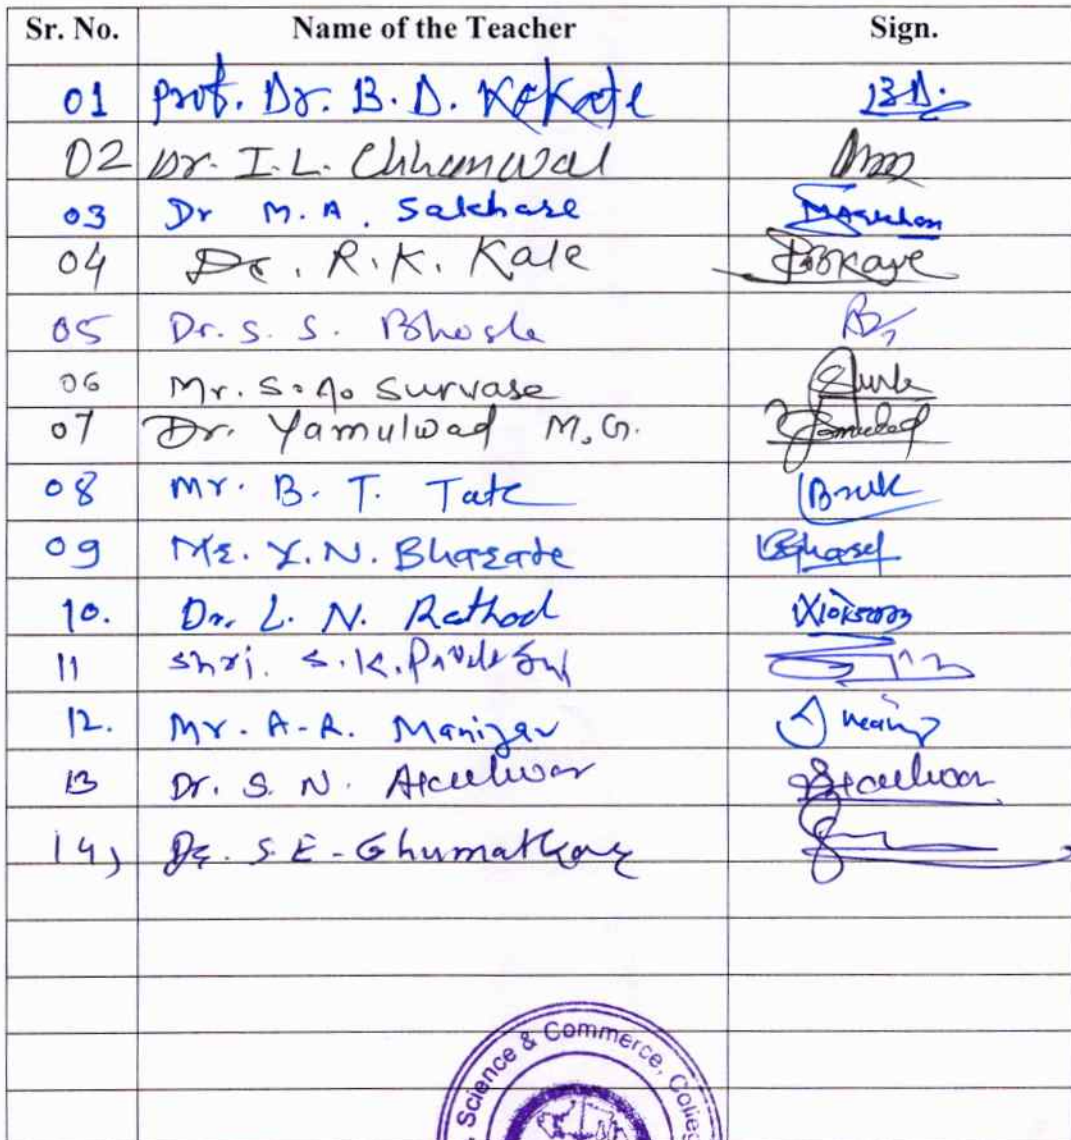 Sr. No. Name of the Teacher Sign.
01 Prof. Dr. B. D. Kokate B.D.
02 Dr. I.L. Chhanwal
03 Dr M.A. Sakhare
04 Dr. R.K. Kale
05 Dr. S. S. Bhosle
06 Mr. S. A. Survase
07 Dr. Yamulwad M.G.
08 Mr. B. T. Tate
09 Mr. Y. N. Bhagade
10. Dr. L. N. Rathod
11 Shri. S. K.
12. Mr. A. R.
13 Dr. S. N. Akulwar
14) Dr. S. E. Ghumatkar
Science & Commerce, College